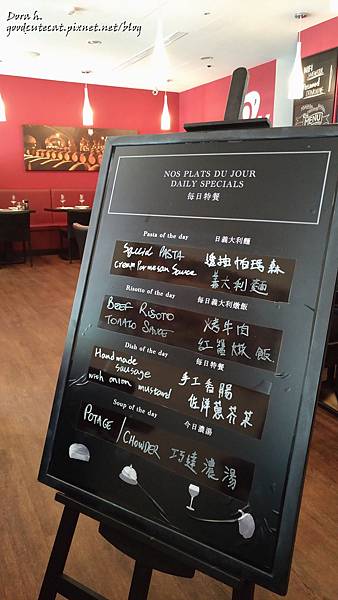 Dora h.
goodcutecat.pixnet.net/blog
WiFi
Password
MENU
NOS PLATS DU JOUR
DAILY SPECIALS
每日特餐
Pasta of the day 日義大利麵
Squid PASTA
Cream Parmesan Sauce
透抽帕瑪森
義大利麵
Risotto of the day 每日義大利燉飯
BEEF RISOTO
TOMATO SAUCE
烤牛肉
紅醬燉飯
Dish of the day 每日特餐
Handmade
sausage
with onion mustard
手工香腸
佐洋蔥芥茉
Soup of the day 今日濃湯
POTAGE/CHOWDER 巧達濃湯